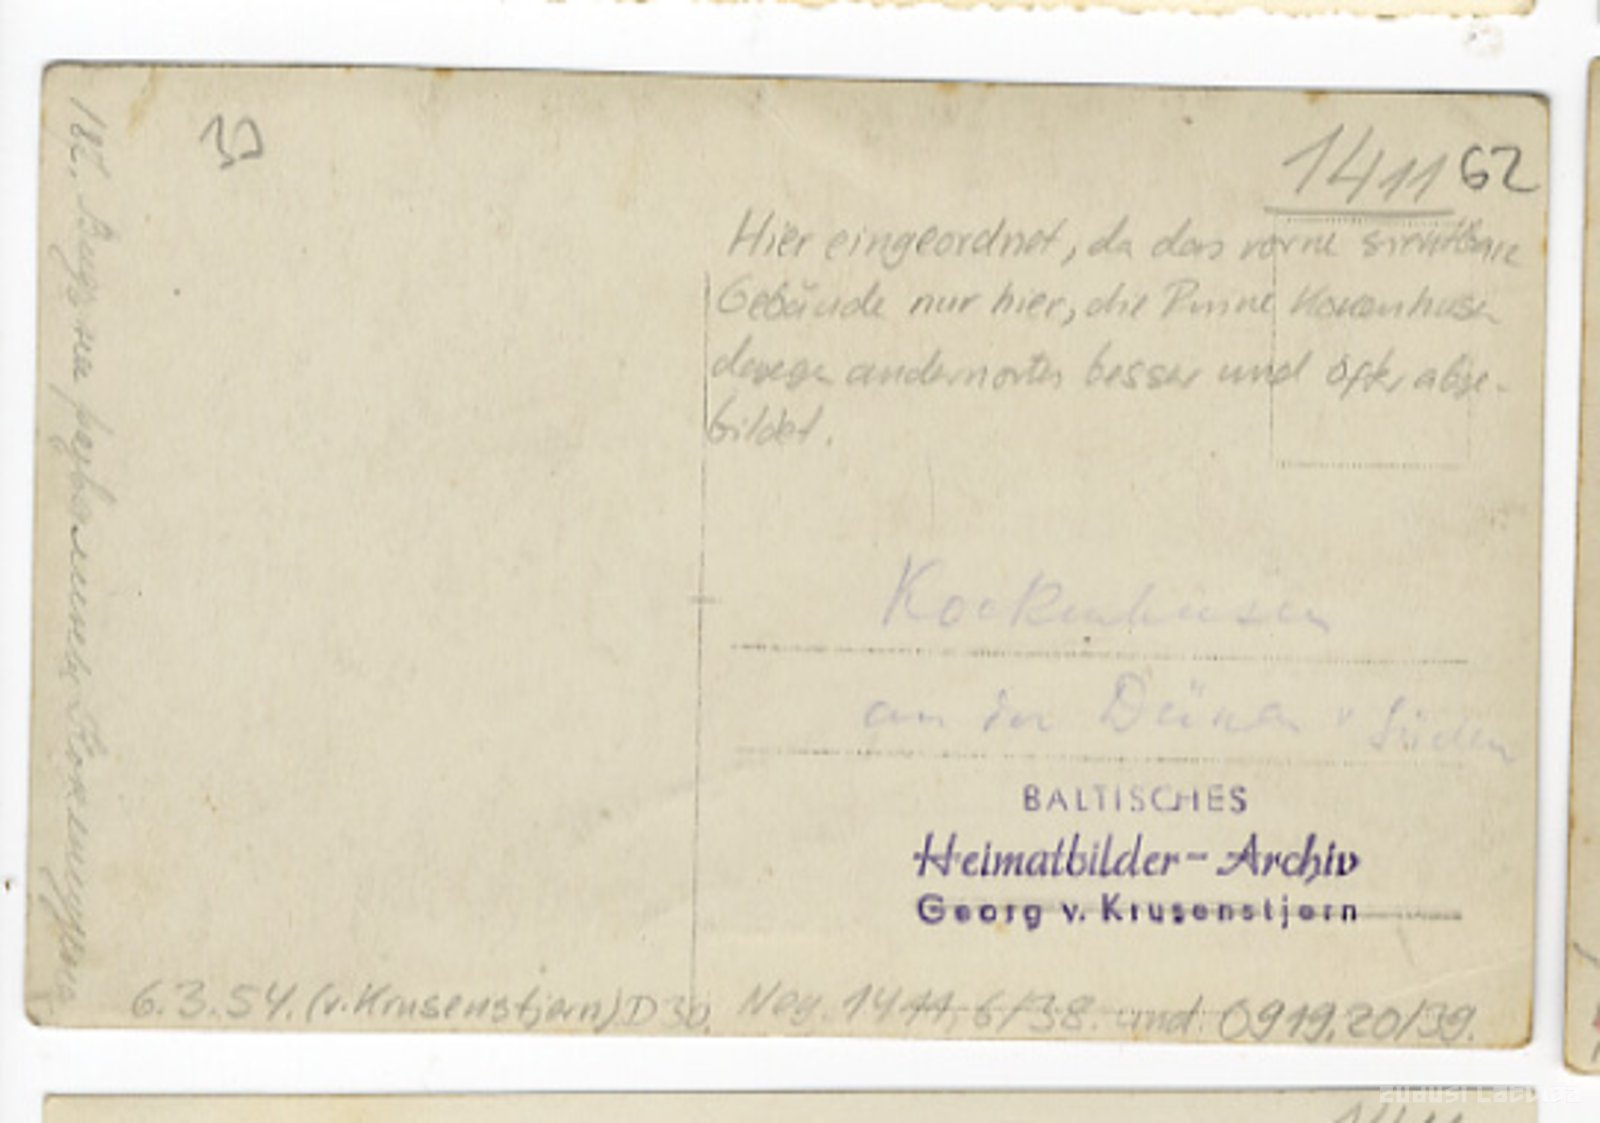 1411 62
Hier eingeordnet, da das vorne sichtbare
Gebäude nur hier, die Ruine Kokenhusen
dagegen andernorts besser und öfter abge-
bildet.
Kockenhusen
an der Düna v Süden
BALTISCHES
Heimatbilder-Archiv
Georg v. Krusenstjern
6.3.54. (v. Krusenstjern) D 30. Neg. 1411, 6/38. und 0919.20/39.
182. Видъ на развалины Кокенгузена
zudusi Latvija